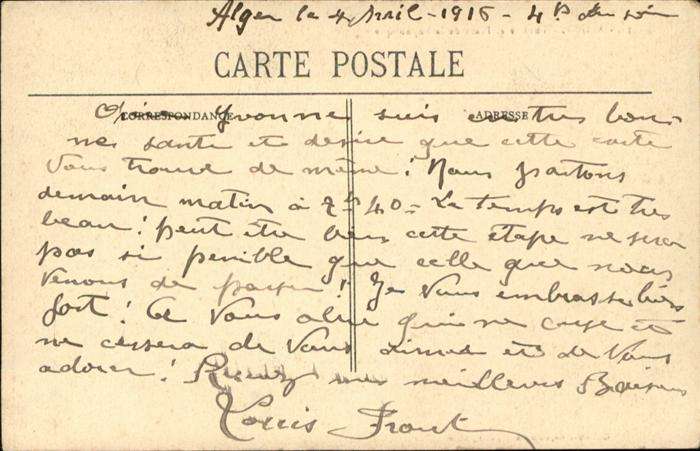 Alger le 4 Avril - 1916 - 4h du soir
CARTE POSTALE
CORRESPONDANCE ADRESSE
Yvonne suis en très bon-
ne santé et désire que cette carte
vous trouve de même! Nous partons
demain matin à 7h 40 = Le temps est très
beau! peut être bien cette étape ne sera
pas si penible que celle que nous
venons de passer! Je vous embrasse bien
fort! A vous celui qui ne cesse et
ne cessera de vous aimer et de vous
adorer! Recevez mes meilleurs Baisers
Louis